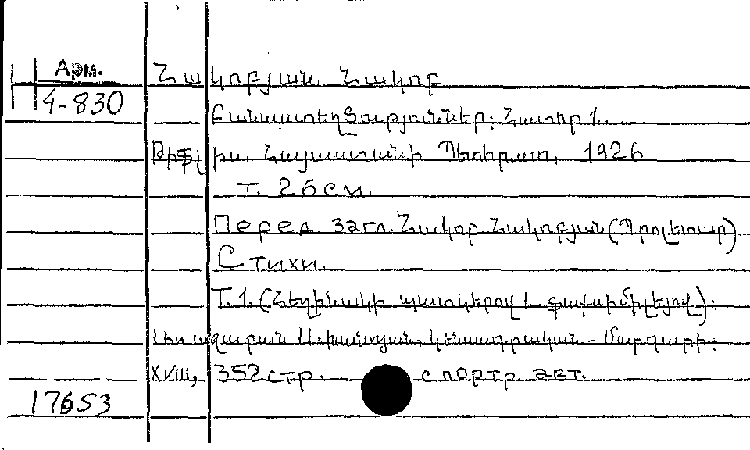 Арм.
4-830
Հակոբյան Հակոբ
Բանաստեղծություններ: Հատոր 1.
Թիֆլիս, Հայաստանի Պետհրատ, 1926
Т. 26 см.
Перед загл. Հակոբ Հակոբյան (Պրոլետար)
Стихи.
Т. 1. (Հեղինակի պատկերով և ֆաքսիմիլեյով):
XVIII, 352 стр. с портр авт.
17653